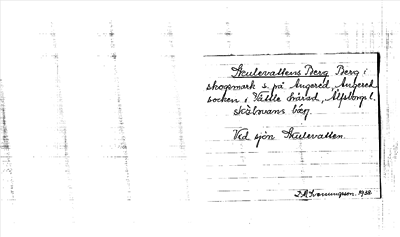 Skulevattens Berg Berg i
skogsmark s. på Angered, Angered
socken i Vättle härad, Älfsborgs l.
skåbovans bäg.
Ved sjön Skulevatten.
1938